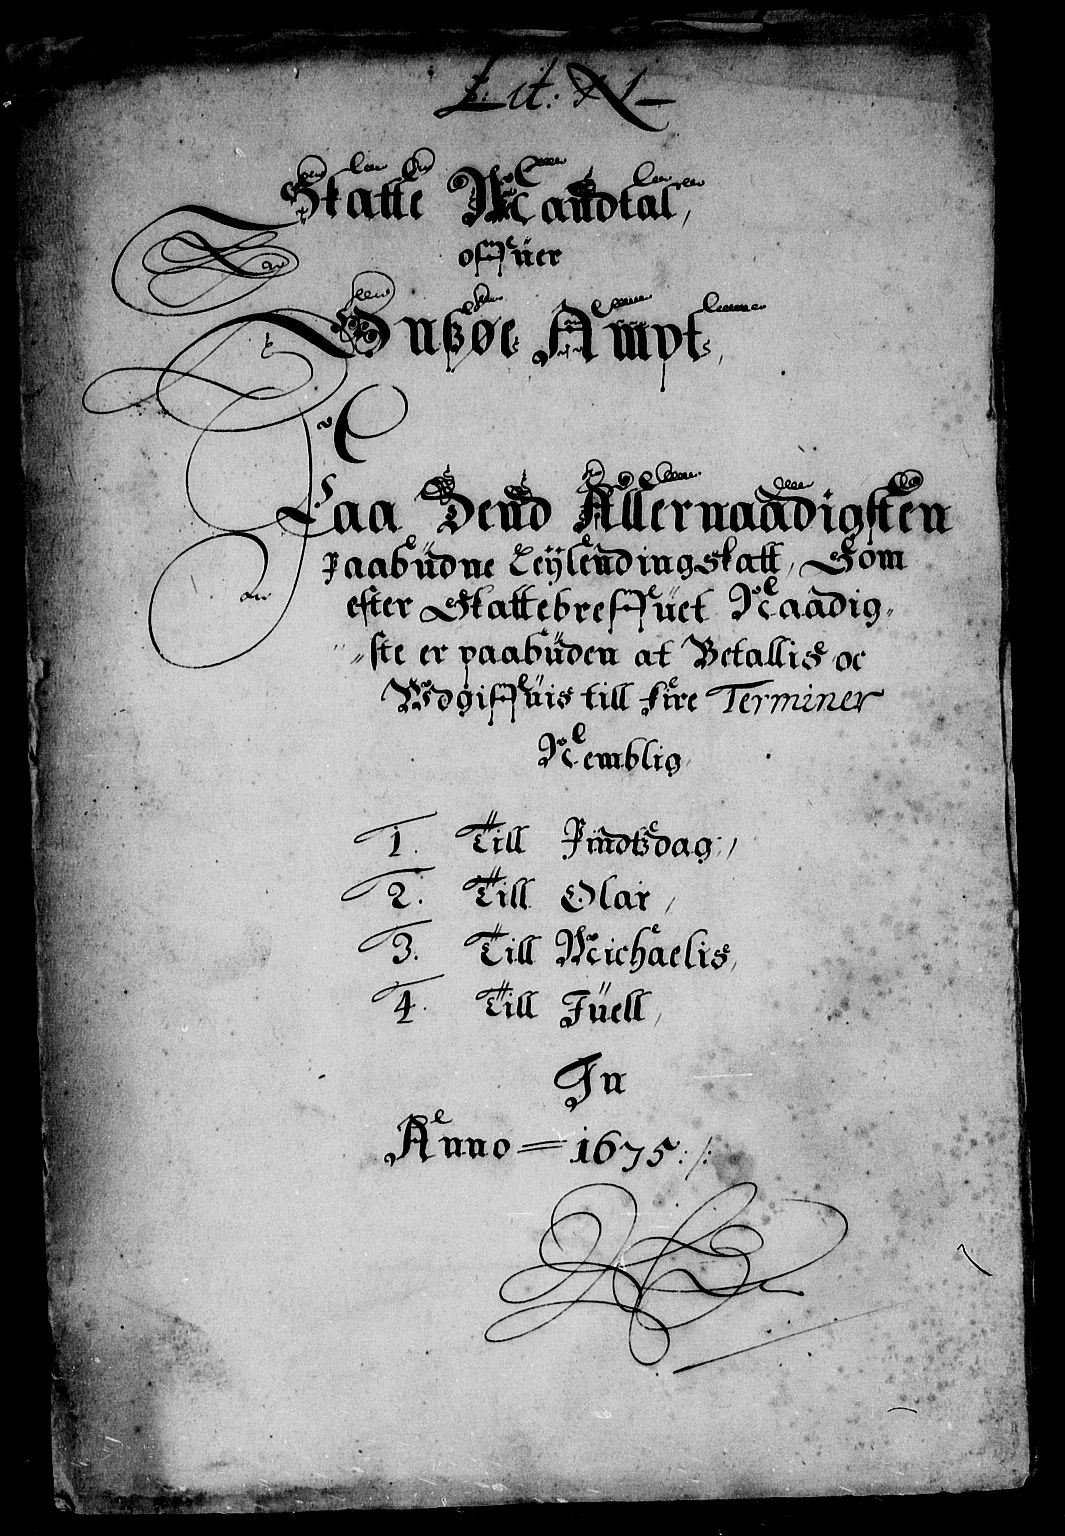 Lit: N 1
Skatte Mandtal,
offüer
Bußøe Ampt,
Paa Dend Allernaadigsten
Paabüdne Leÿlendingskatt, Som
efter Skattebreffüet Naadig-
ste er paabüden at Betallis oc
Vdgiffüis till fire Terminer
Nemblig
1. Till Pindtzdag,
2. Till Olai,
3. Till Michaelis,
4. Till Jüell,
In
Anno = 1675